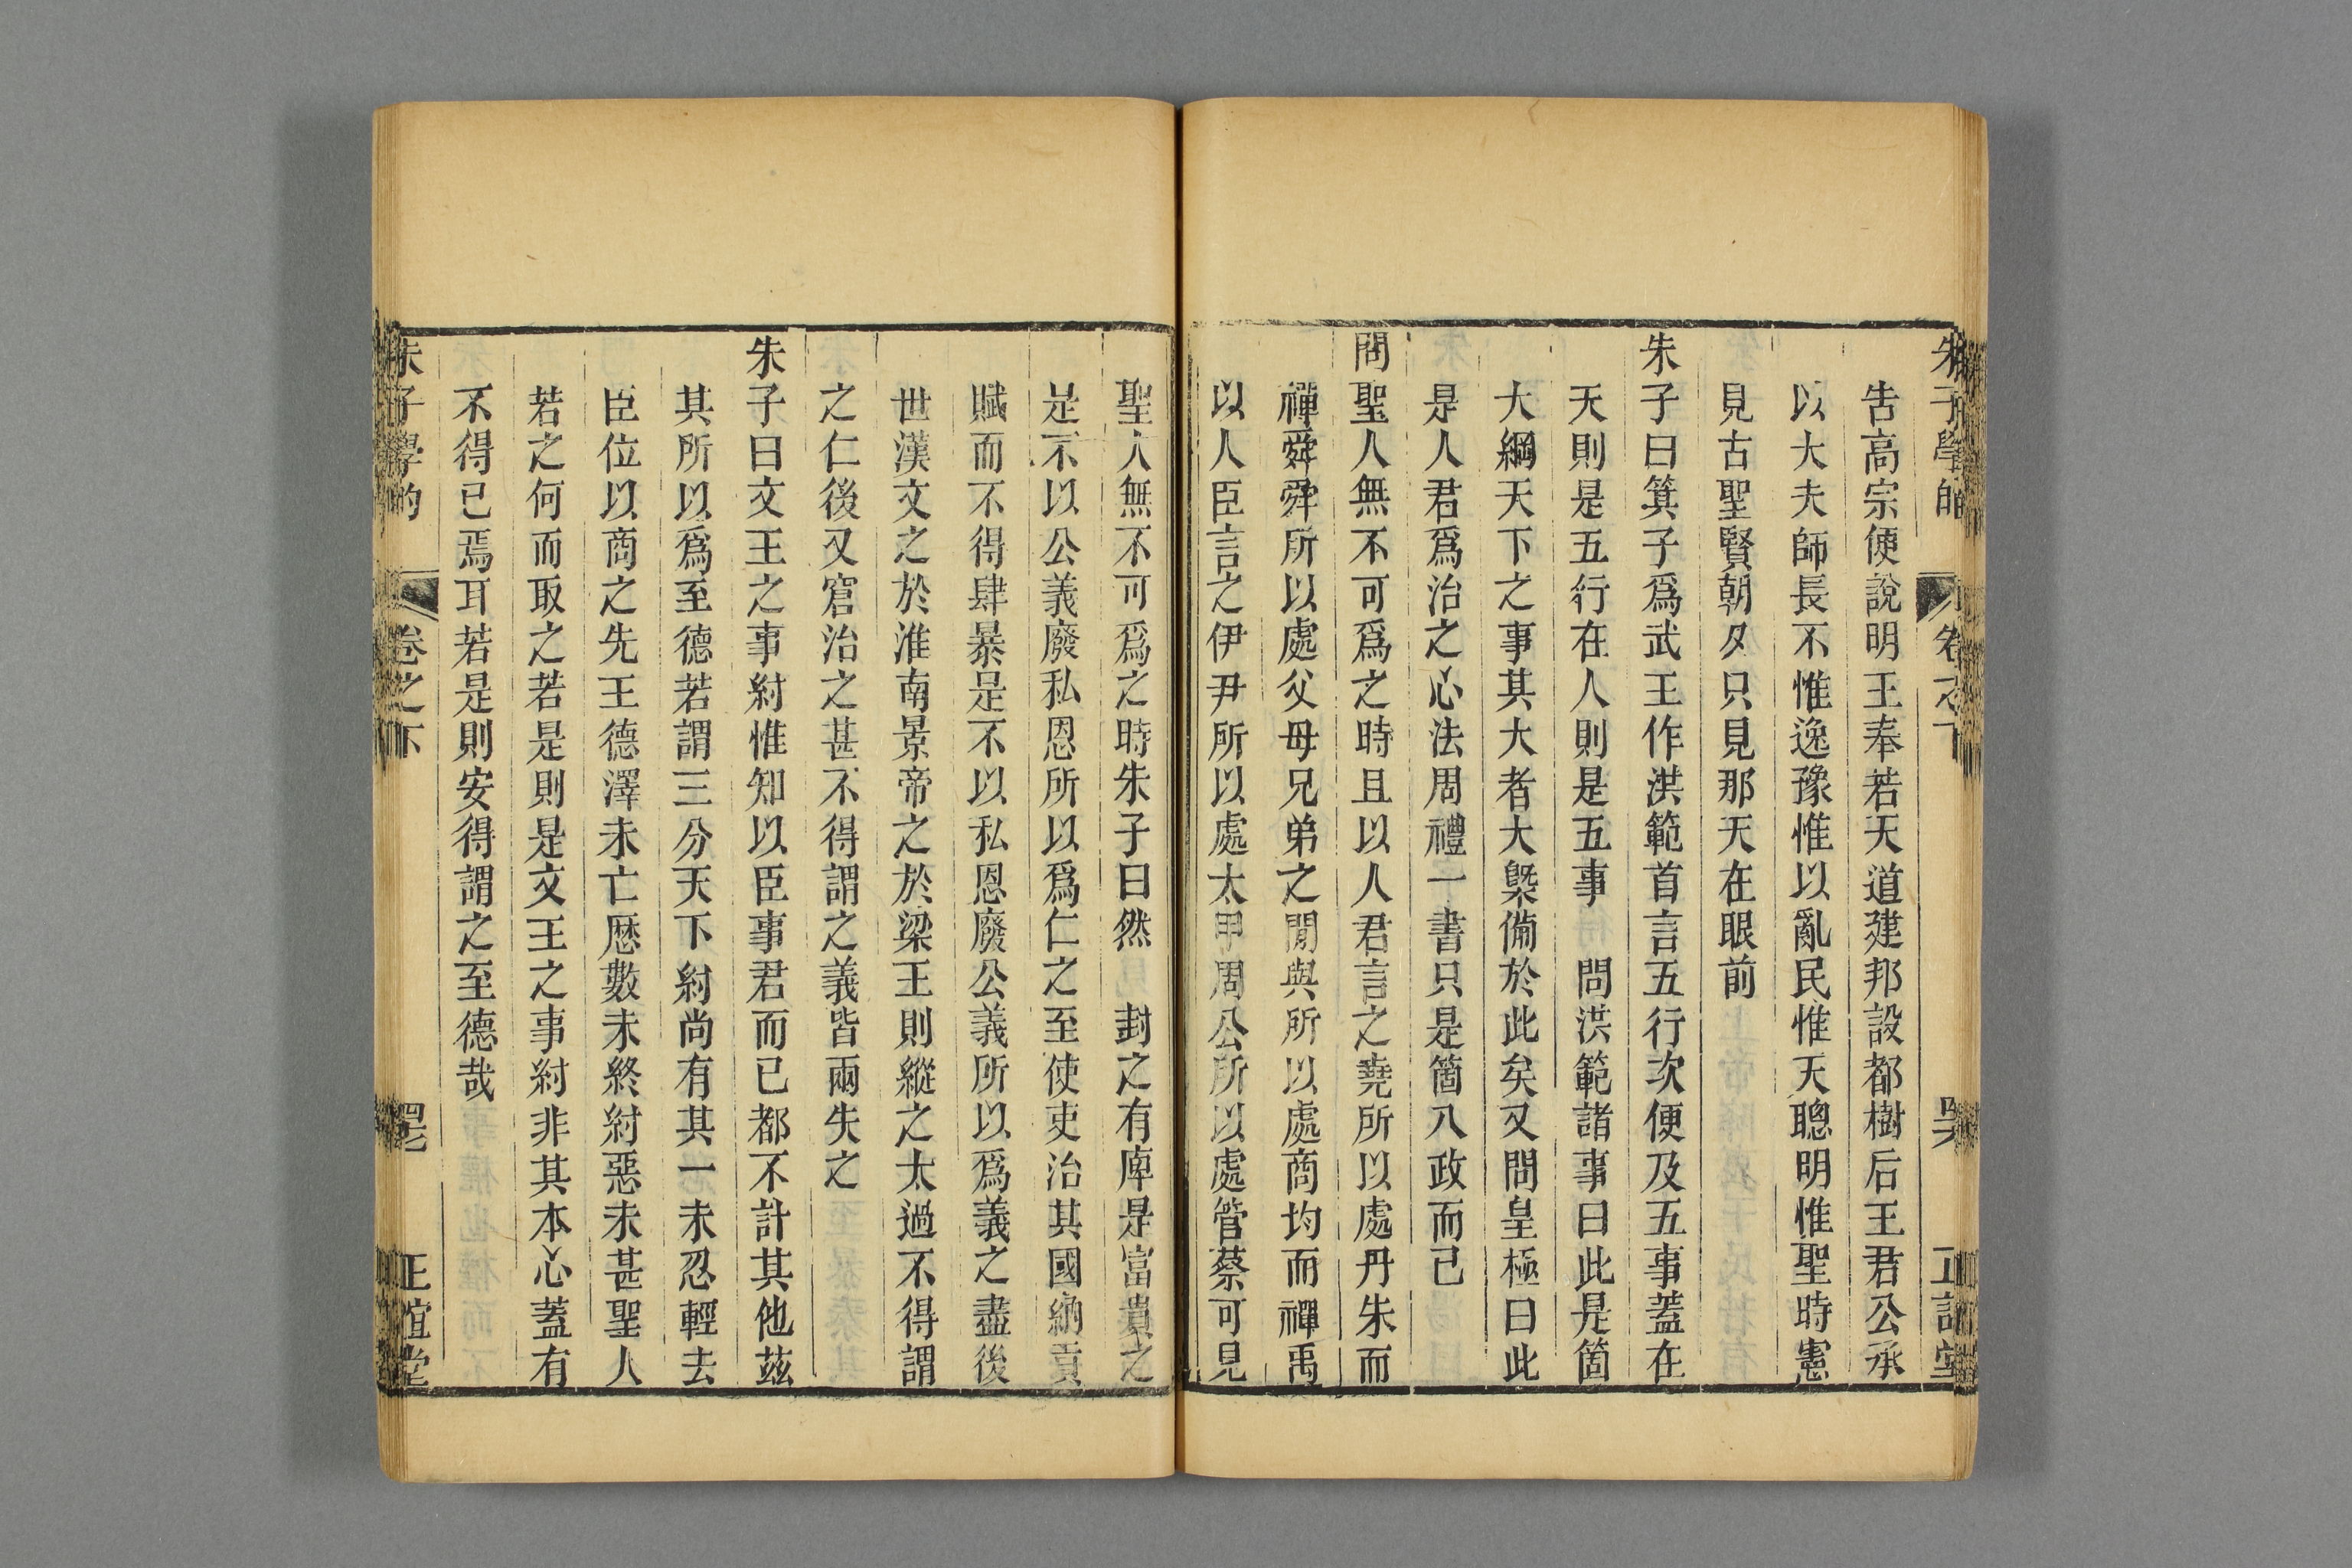 朱子學的 卷之下 𦊆六 正誼堂
告高宗使說明王奉若天道建邦設都樹后王君公承
以大夫師長不惟逸豫惟以亂民惟天聰明惟聖時憲
見古聖賢朝夕只見那天在眼前
朱子曰箕子爲武王作洪範首言五行次便及五事蓋在
天則是五行在人則是五事 問洪範諸事曰此是箇
大綱天下之事其大者大槩備於此矣又問皇極曰此
是人君爲治之心法周禮一書只是箇八政而已
問聖人無不可爲之時且以人君言之堯所以處丹朱而
禪舜舜所以處父母兄弟之閒與所以處商均而禪禹
以人臣言之伊尹所以處太甲周公所以處管蔡可見
聖人無不可爲之時朱子曰然 封之有庳是富貴之
是不以公義廢私恩所以爲仁之至使吏治其國納貢
賦而不得肆暴是不以私恩廢公義所以爲義之盡後
世漢文之於淮南景帝之於梁王則縱之太過不得謂
之仁後又窘治之甚不得謂之義皆兩失之
朱子曰文王之事紂惟知以臣事君而已都不計其他茲
其所以爲至德若謂三分天下紂尚有其一未忍輕去
臣位以商之先王德澤未亡歷數未終紂惡未甚聖人
若之何而取之若是則是文王之事紂非其本心蓋有
不得已焉耳若是則安得謂之至德哉
朱子學的 卷之下 正誼堂